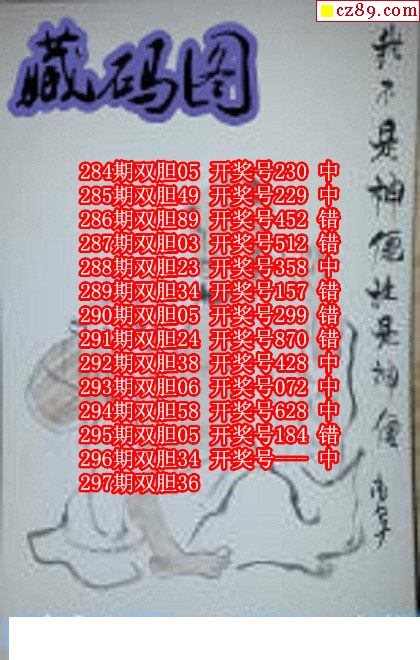 cz89.com
藏码图
284期双胆05 开奖号230 中
285期双胆49 开奖号229 中
286期双胆89 开奖号452 错
287期双胆03 开奖号512 错
288期双胆23 开奖号358 中
289期双胆34 开奖号157 错
290期双胆05 开奖号299 错
291期双胆24 开奖号870 错
292期双胆38 开奖号428 中
293期双胆06 开奖号072 中
294期双胆58 开奖号628 中
295期双胆05 开奖号184 错
296期双胆34 开奖号--- 中
297期双胆36
我不是神僊
是神僊